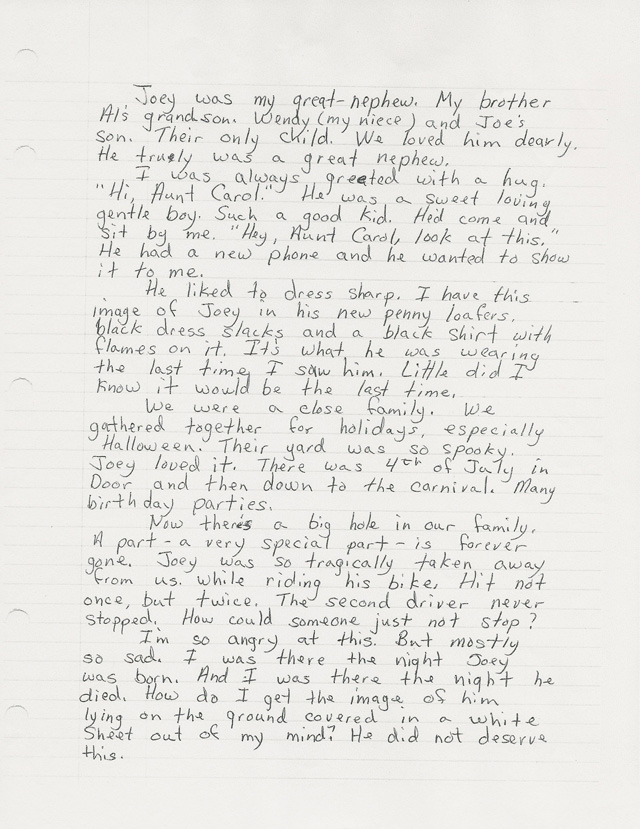 Joey was my great-nephew. My brother
Al's grandson. Wendy (my niece) and Joe's
son. Their only child. We loved him dearly.
He truely was a great nephew.
I was always greeted with a hug.
"Hi, Aunt Carol." He was a sweet loving
gentle boy. Such a good kid. He'd come and
sit by me. "Hey, Aunt Carol, look at this."
He had a new phone and he wanted to show
it to me.
He liked to dress sharp. I have this
image of Joey in his new penny loafers,
black dress slacks and a black shirt with
flames on it. It's what he was wearing
the last time I saw him. Little did I
know it would be the last time.
We were a close family. We
gathered together for holidays, especially
Halloween. Their yard was so spooky.
Joey loved it. There was 4th of July in
Door and then down to the carnival. Many
birthday parties.
Now there's a big hole in our family.
A part - a very special part - is forever
gone. Joey was so tragically taken away
from us. while riding his bike. Hit not
once, but twice. The second driver never
stopped. How could someone just not stop?
I'm so angry at this. But mostly
so sad. I was there the night Joey
was born. And I was there the night he
died. How do I get the image of him
lying on the ground covered in a white
sheet out of my mind? He did not deserve
this.